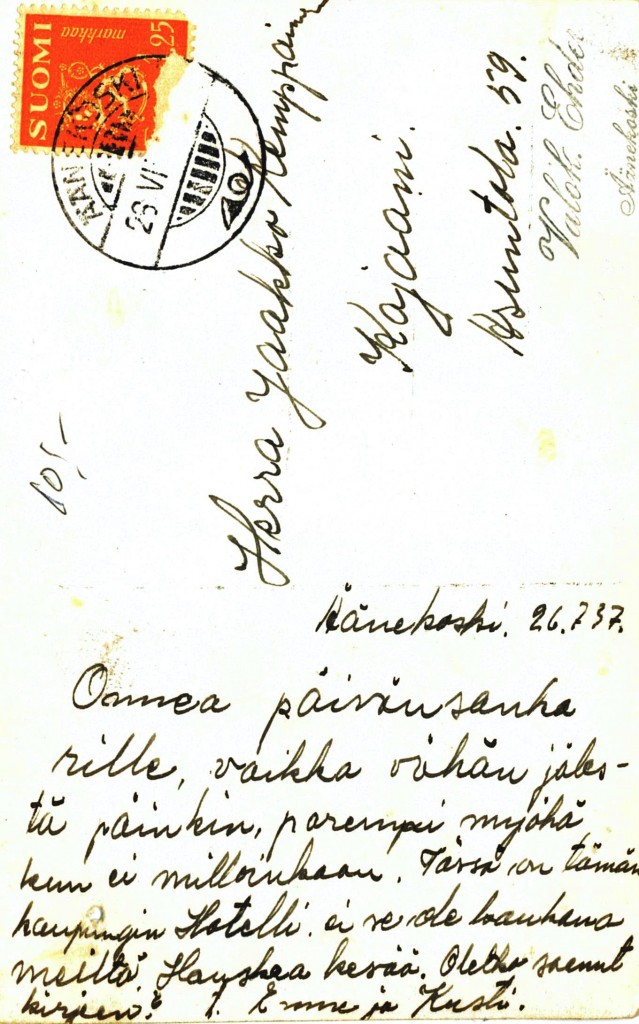 SUOMI
markkaa
25
ÄÄNEKOSKI
26 VI
Herra Jaakko Kemppainen
Kajaani.
Asuntola. 59.
Valok. Ehder
Äänekoski
10,-
Äänekoski. 26.7 37.
Onnea päivänsanka
rille, vaikka vähän jäles-
tä päinkin, parempi myöhä
kun ei milloinkaan. Tässä on tämän
kaupungin Hotelli. ei se ole kaukana
meiltä. Hauskaa kesää. Oletko saanut
kirjeen? t. Emme ja Kusti.